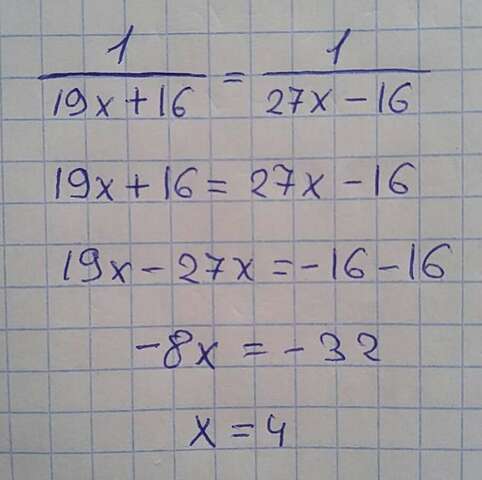 1/(19x+16) = 1/(27x-16)
19x+16 = 27x-16
19x-27x = -16-16
-8x = -32
x = 4